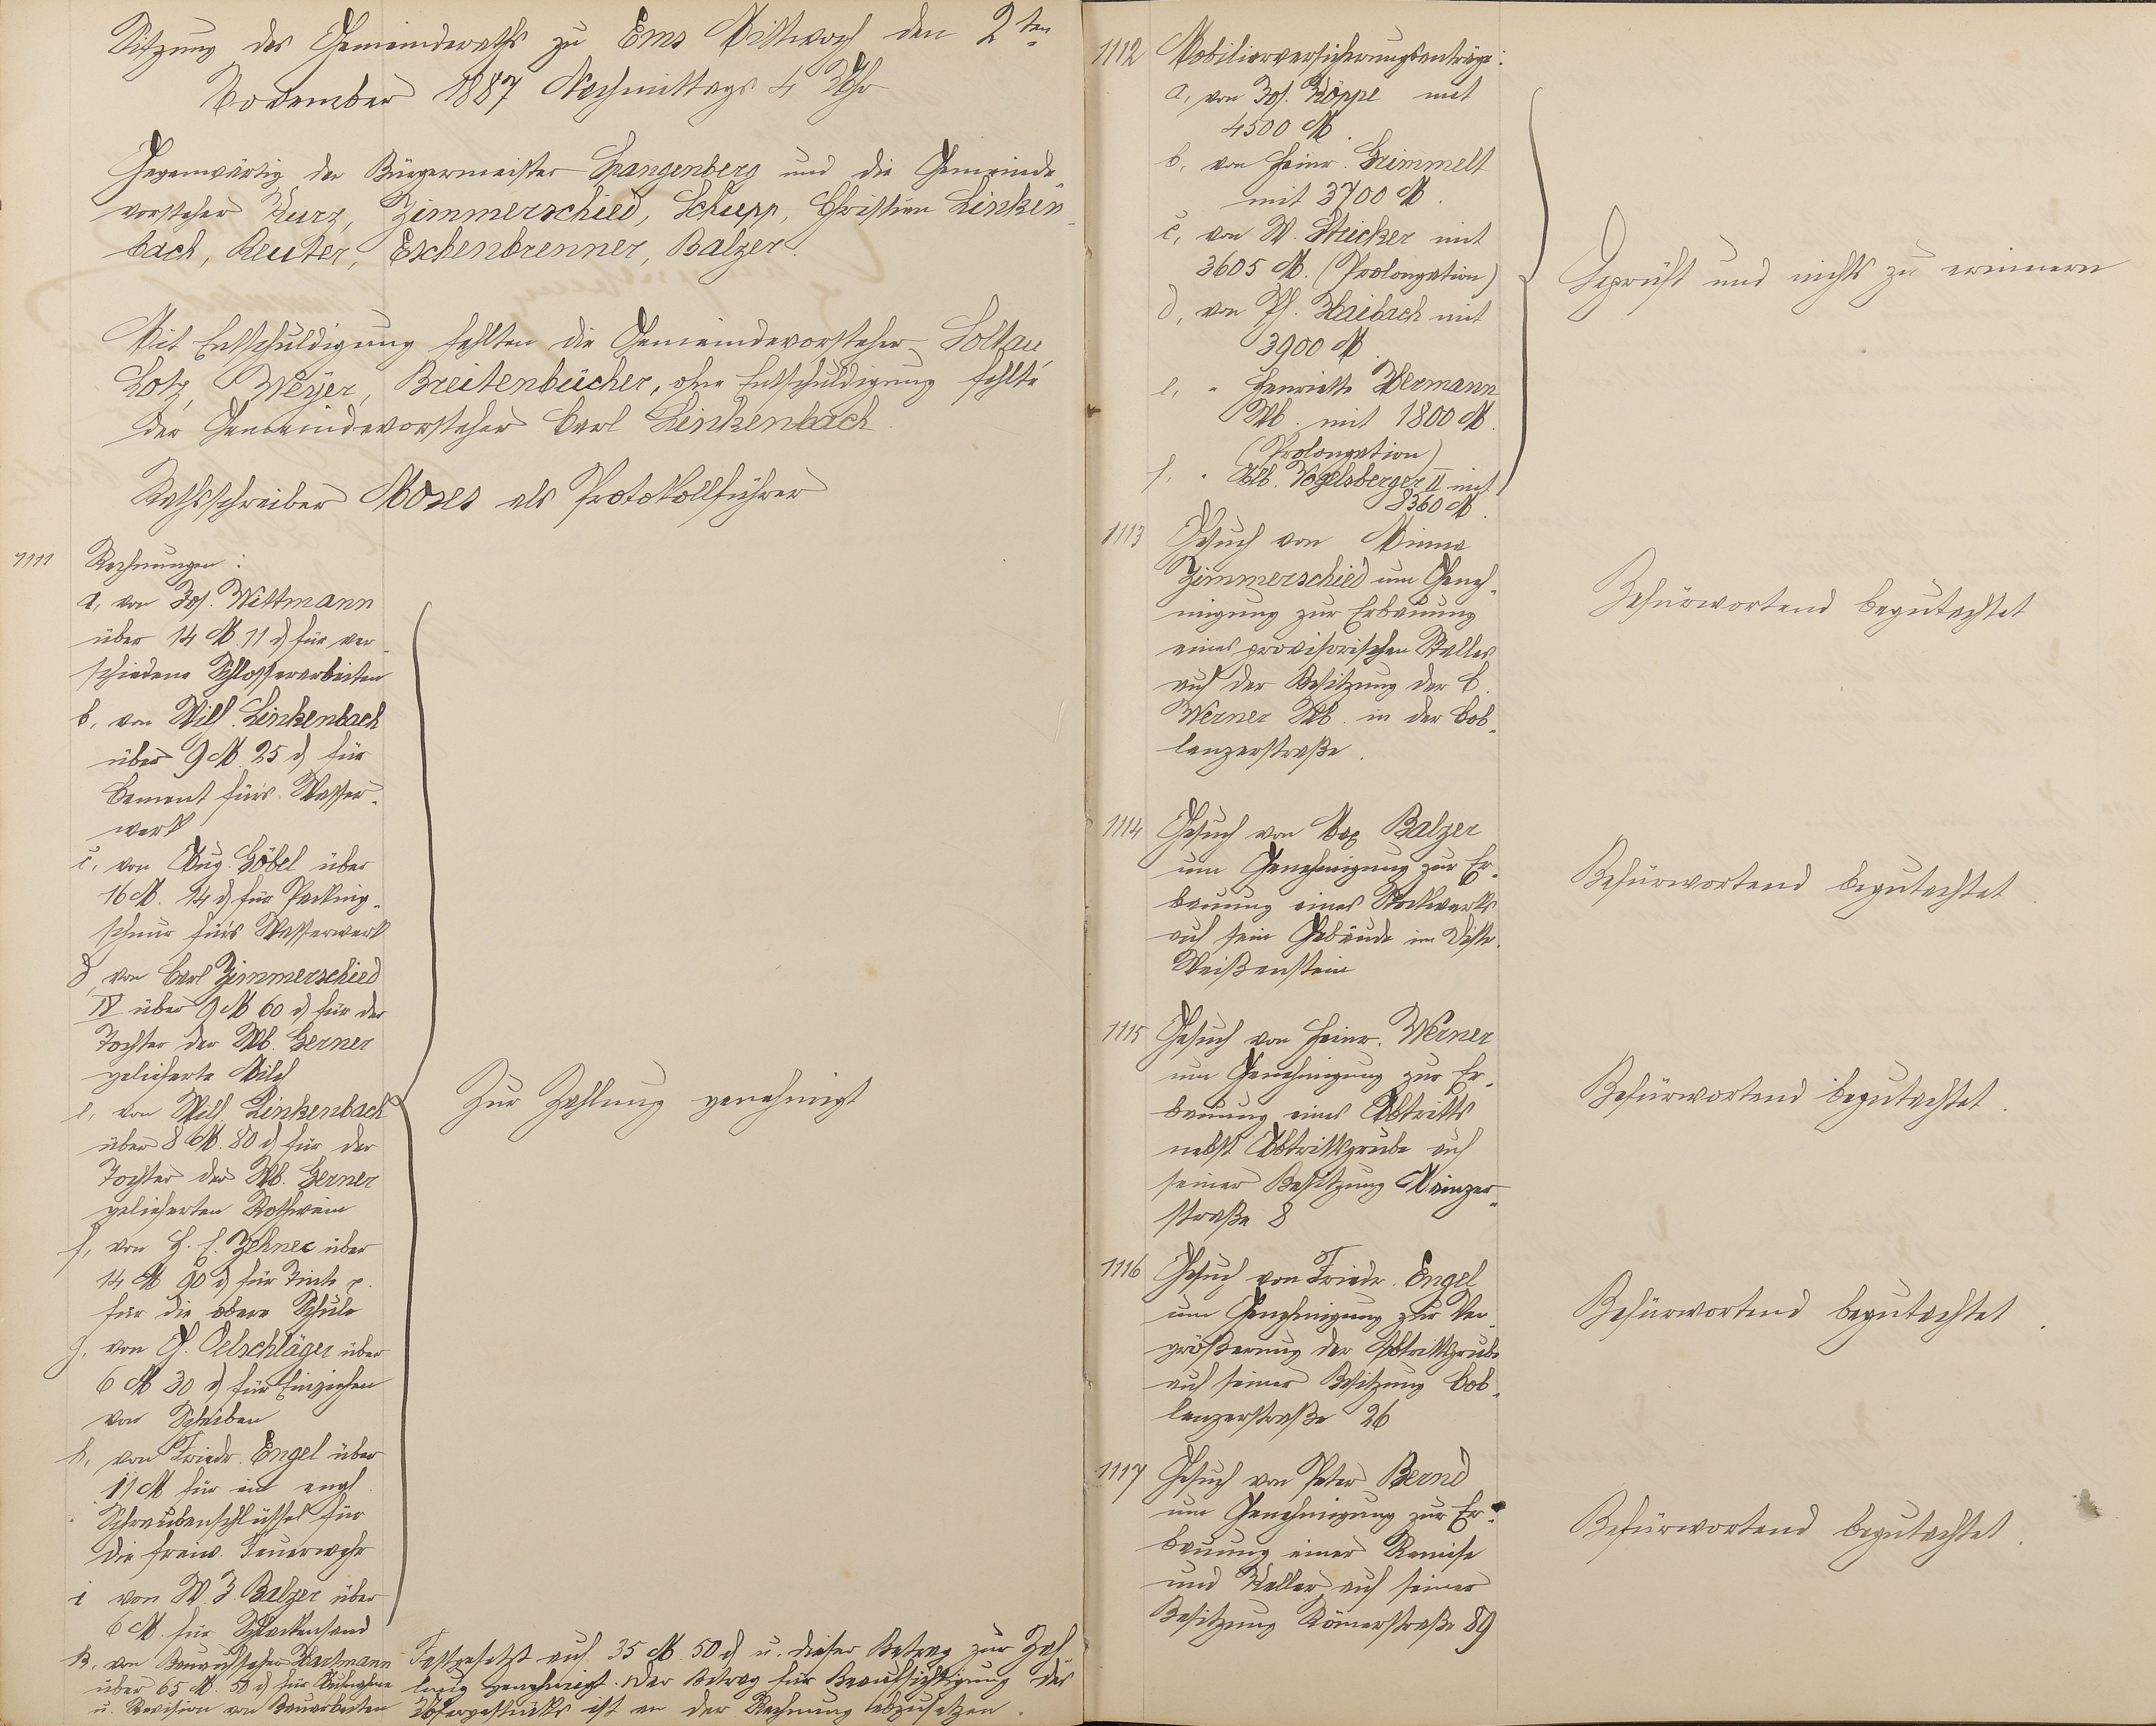 Sitzung des Gemeinderaths zu Ems Mittwoch den 2ten
November 1887 Nachmittags 4 Uhr
Gegenwärtig der Bürgermeister Spangenberg und die Gemeinde-
vorsteher Kurz, Zimmerschied, Schupp, Christian Linken-
bach, Reuter, Eschenbrenner, Balzer.
Mit Entschuldigung fehlten die Gemeindevorsteher Soltau,
Lotz, Weyer, Breitenbücher, ohne Entschuldigung fehlte
der Gemeindevorsteher Carl Linkenbach.
Rathsschreiber Moses als Protokollführer
1111 Rechnungen:
a, von Jos. Wittmann
über 14 M 11 d für ver-
schiedene Schlosserarbeiten
b, von Wilh. Linkenbach
über 9 M. 25 d für
Cement für's Wasser-
werk
c, von Aug. Göbel über
16 M. 14 d für Packing-
schnur für's Wasserwerk
d, von Carl Zimmerschied
IV über 9 M 60 d für der
Tochter der Wb. Gerner
gelieferte Milch
e, von Wilh. Linkenbach
über 8 M. 80 d für der
Tochter der Wb. Gerner
gelieferten Rothwein
f, von H. C. über
14 M 90 d für Tinte p.
für die obere Schule
g, von G. Oelschläger über
6 M 30 d für Einziehen
von Scheiben
h, von Friedr. Engel über
11 M für ein engl.
Schraubenschlüssel für
die freiw. Feuerwehr
i von W. J. Balzer über
6 M. für Schlackensand
Zur Zahlung genehmigt
k, von Bauaufseher Hartmann
über 65 M. 50 d für Aufnahme
u. Revision von Bauarbeiten
Festgesetzt auf 35 M. 50 d u. dieser Betrag zur Zah-
lung genehmigt. Der Betrag für Beaufsichtigung des
ist an der Rechnung abzusetzen.
1112 Mobiliarversicherungsanträge:
a, von Jos. Köppe mit
4500 M.
b, von Heinr. Grimmelt
mit 3700 M.
c, von W. Stricker mit
3605 M. (Prolongation)
d, von Ph. Haibach mit
3900 M.
e, " Henriette Hermann
Wb. mit 1800 M.
(Prolongation)
f, " Alb. Vogelsberger II mit
8360 M.
Geprüft und nichts zu erinnern
1113 Gesuch von Minna
Zimmerschied um Geneh-
migung zur Erbauung
eines provisorischen Stalles
auf der Besitzung der C.
Werner Wb. in der Cob-
lenzerstraße.
Befürwortend begutachtet
1114 Gesuch von Max Balzer
um Genehmigung zur Er-
bauung eines Stockwerks
auf sein Gebäude im Distr.
Weißenstein
Befürwortend begutachtet.
1115 Gesuch von Heinr. Werner
um Genehmigung zur Er-
bauung eines Abtritts
nebst Abtrittgrube auf
seiner Besitzung Mainzer-
straße 8
Befürwortend begutachtet.
1116 Gesuch von Friedr. Engel
um Genehmigung zur Ver-
größerung der Abtrittgrube
auf seiner Besitzung Cob-
lenzerstraße 26
Befürwortend begutachtet.
1117 Gesuch von Peter Bernd
um Genehmigung zur Er-
bauung einer Remise
und Keller auf seiner
Besitzung Römerstraße 89
Befürwortend begutachtet.